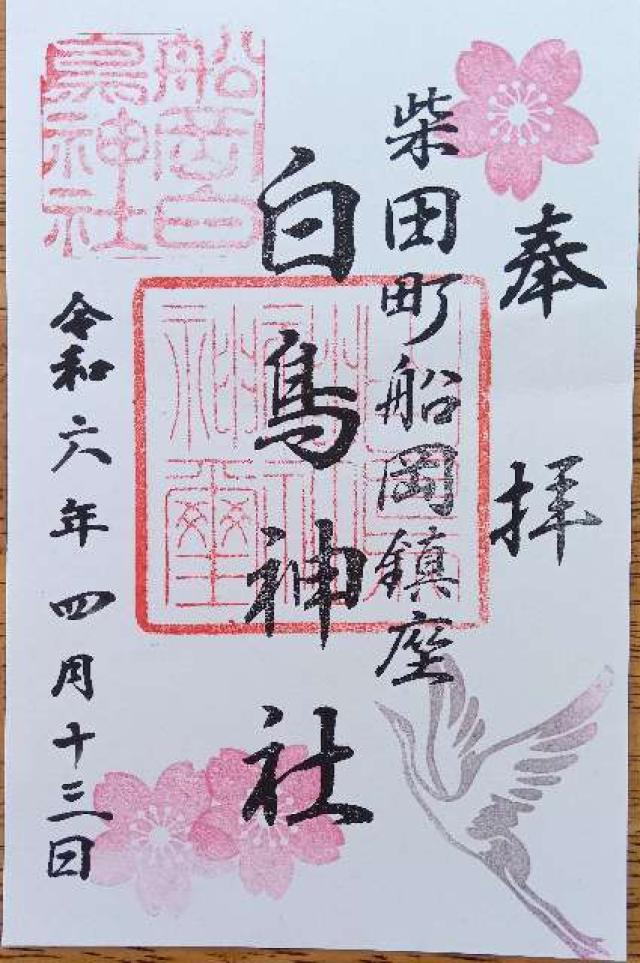 奉拝
柴田町船岡鎮座
白鳥神社
令和六年四月十三日
船岡白
鳥神社